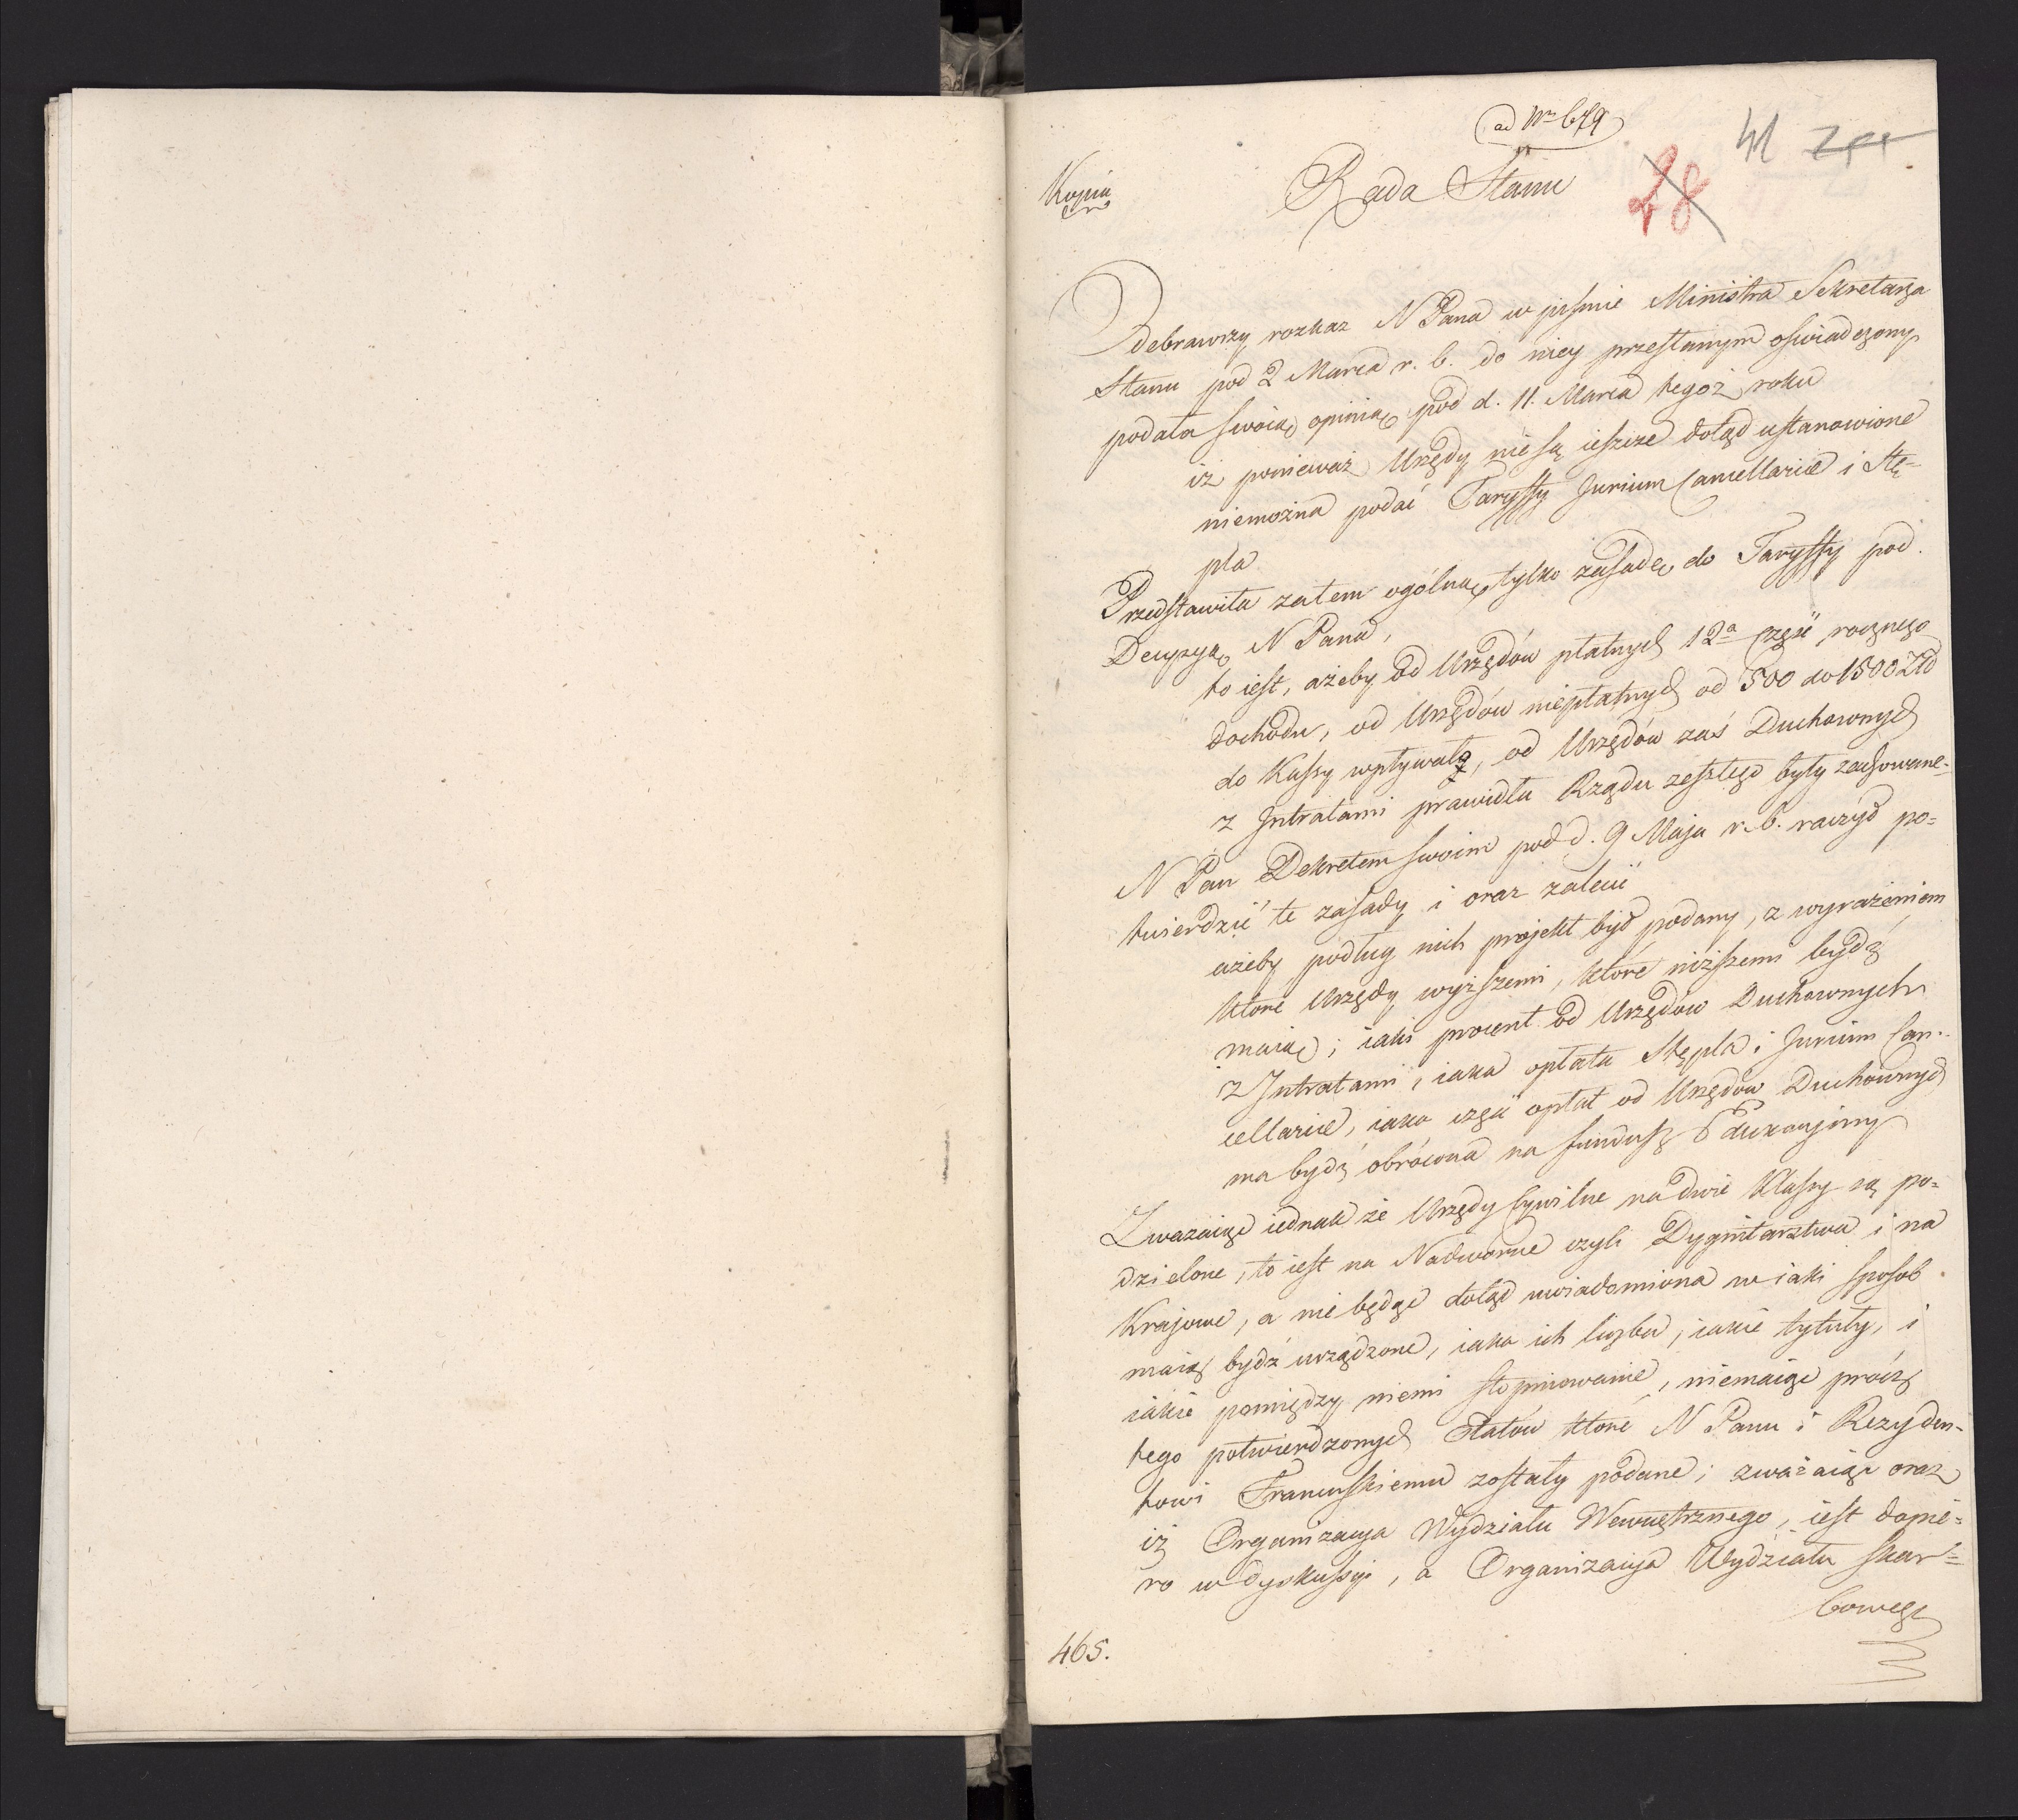 ad Nro 679
41
28
Kopia
Rada Stanu
Odebrawszy rozkaz N Pana w pismie Ministra Sekretarza
Stanu pod 2 Marca r. b. do niey przesłanym oswiadczony
podała swoią opinią pod d. 11. Marca tegoż roku
iż ponieważ Urzędy nie są ieszcze dotąd ustanowione
niemożna podać Taryffy Jurium Cancellariae i Stę-
pla
Przedstawiła zatem ogólną tylko zasadę do Taryffy pod
Decyzyą N Pana,
to iest, ażeby od Urzędów płatnych 12a część rocznego
dochodu, od Urzędów niepłatnych od 500 do 1500 Złł
do Kassy wpływały, od Urzędów zaś Duchownych
z Intratami prawidła Rządu zeszłego były zachowane-
N Pan Dekretem swoim pod d. 9 Maja r. b. raczył po=
twierdzić te zasady i oraz zalecić
ażeby podług nich projekt był podany, z wyrażeniem
które Urzędy wyższemi, które niższemi bydź
maią; iaki procent od Urzędów Duchownych
z Intratami, iaka opłata Stępla i Jurium Can-
cellariae, iaka część opłat od Urzędów Duchownych
ma bydź obrócona na fundusz Edukacyiny
Zważaiąc iednak że Urzędy Cywilne na dwie Klassy są po=
dzielone, to iest na Nadworne czyli Dygnitarstwa i na
Krajowe, a nie będąc dotąd uwiadomiona w iaki sposob
maią bydź urządzone, iaka ich liczba, iakie tytuły, i
iakie pomiędzy niemi stopniowanie, niemaiąc prócz
tego potwierdzonych Etatów które N Panu i Rezyden-
towi Francuskiemu zostały podane; zważaiąc oraz
iż Organizacya Wydziału Wewnętrznego, iest dopie=
ro w dyskussyi, a Organizacya Wydziału skar=
bowego
465.